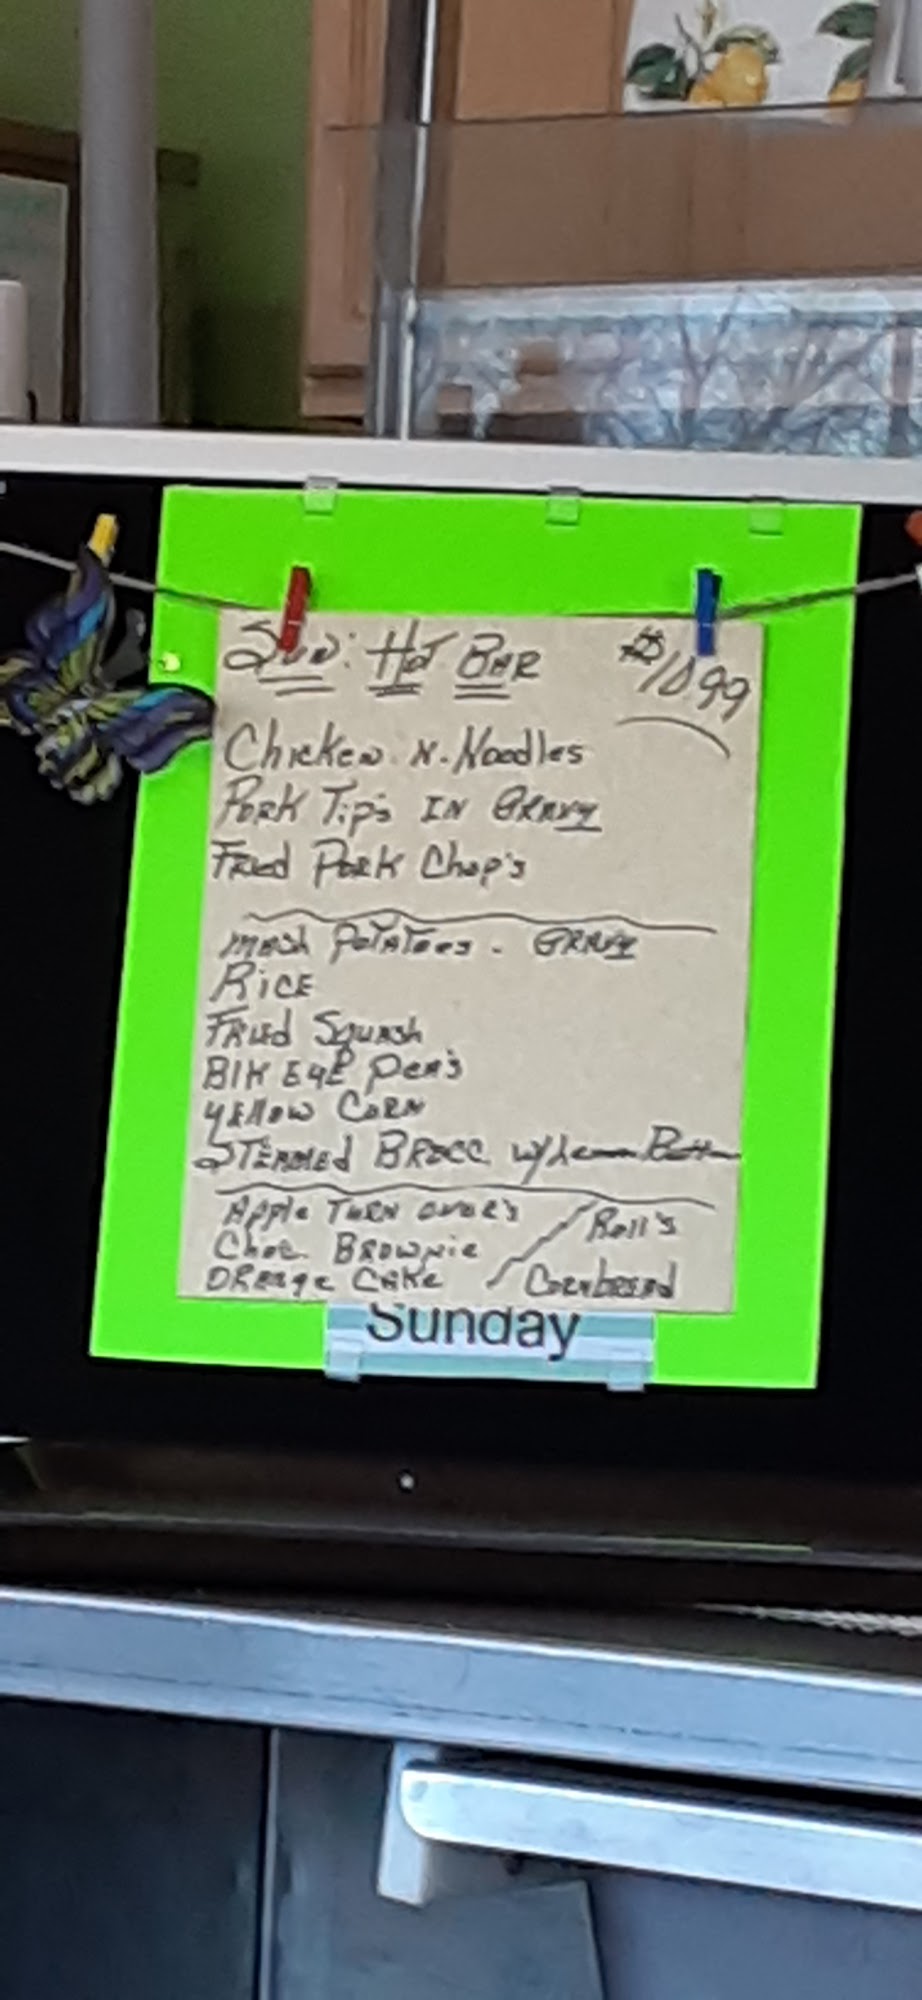 Sun: Hot Bar $10.99
Chicken . N . Noodles
Pork Tip's IN Gravy
Fried Pork Chop's
Mash Potatoes - Gravy
Rice
Fried Squash
Blk Eye Pea's
Yellow Corn
Steamed Brocc w/Lemon Butter
Apple Turn over's
Choc. Brownie
Orange Cake
Roll's
Cornbread
Sunday